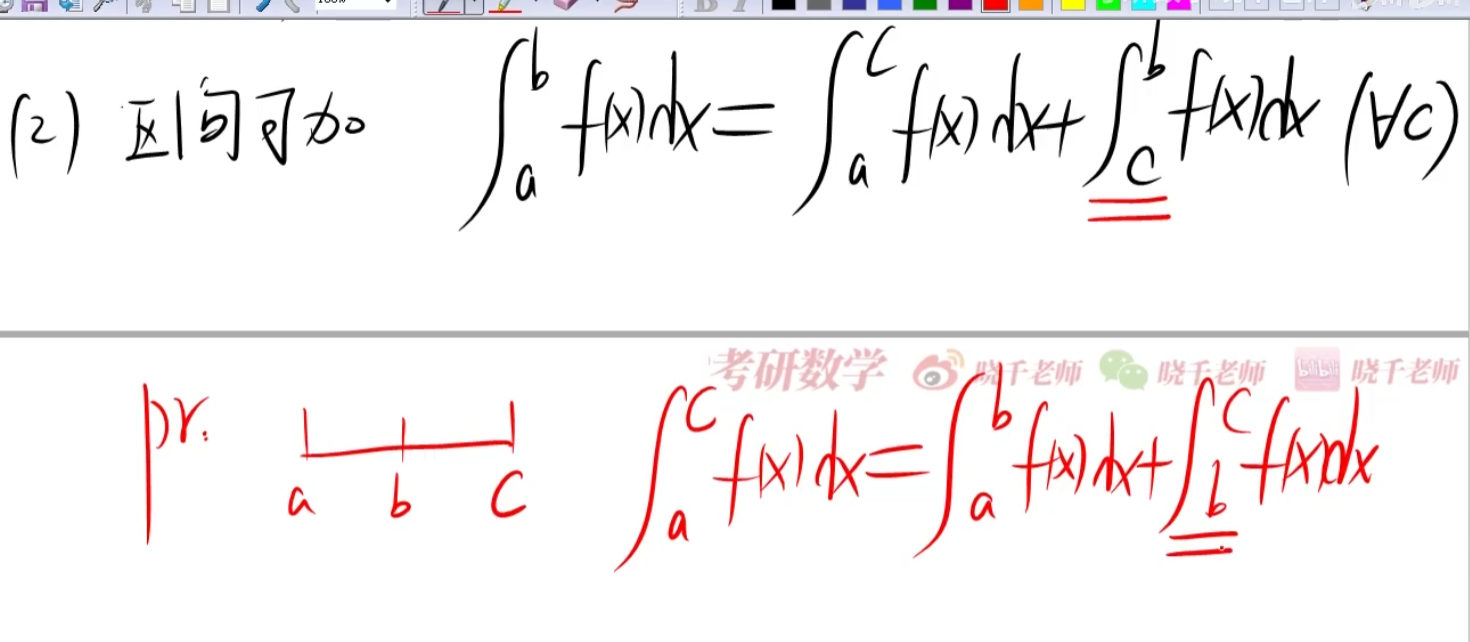 (2) 区间可加 ∫_a^b f(x)dx = ∫_a^c f(x)dx + ∫_c^b f(x)dx (∀c)
考研数学 晓千老师 晓千老师 bilibili 晓千老师
pr: a b c ∫_a^c f(x)dx = ∫_a^b f(x)dx + ∫_b^c f(x)dx